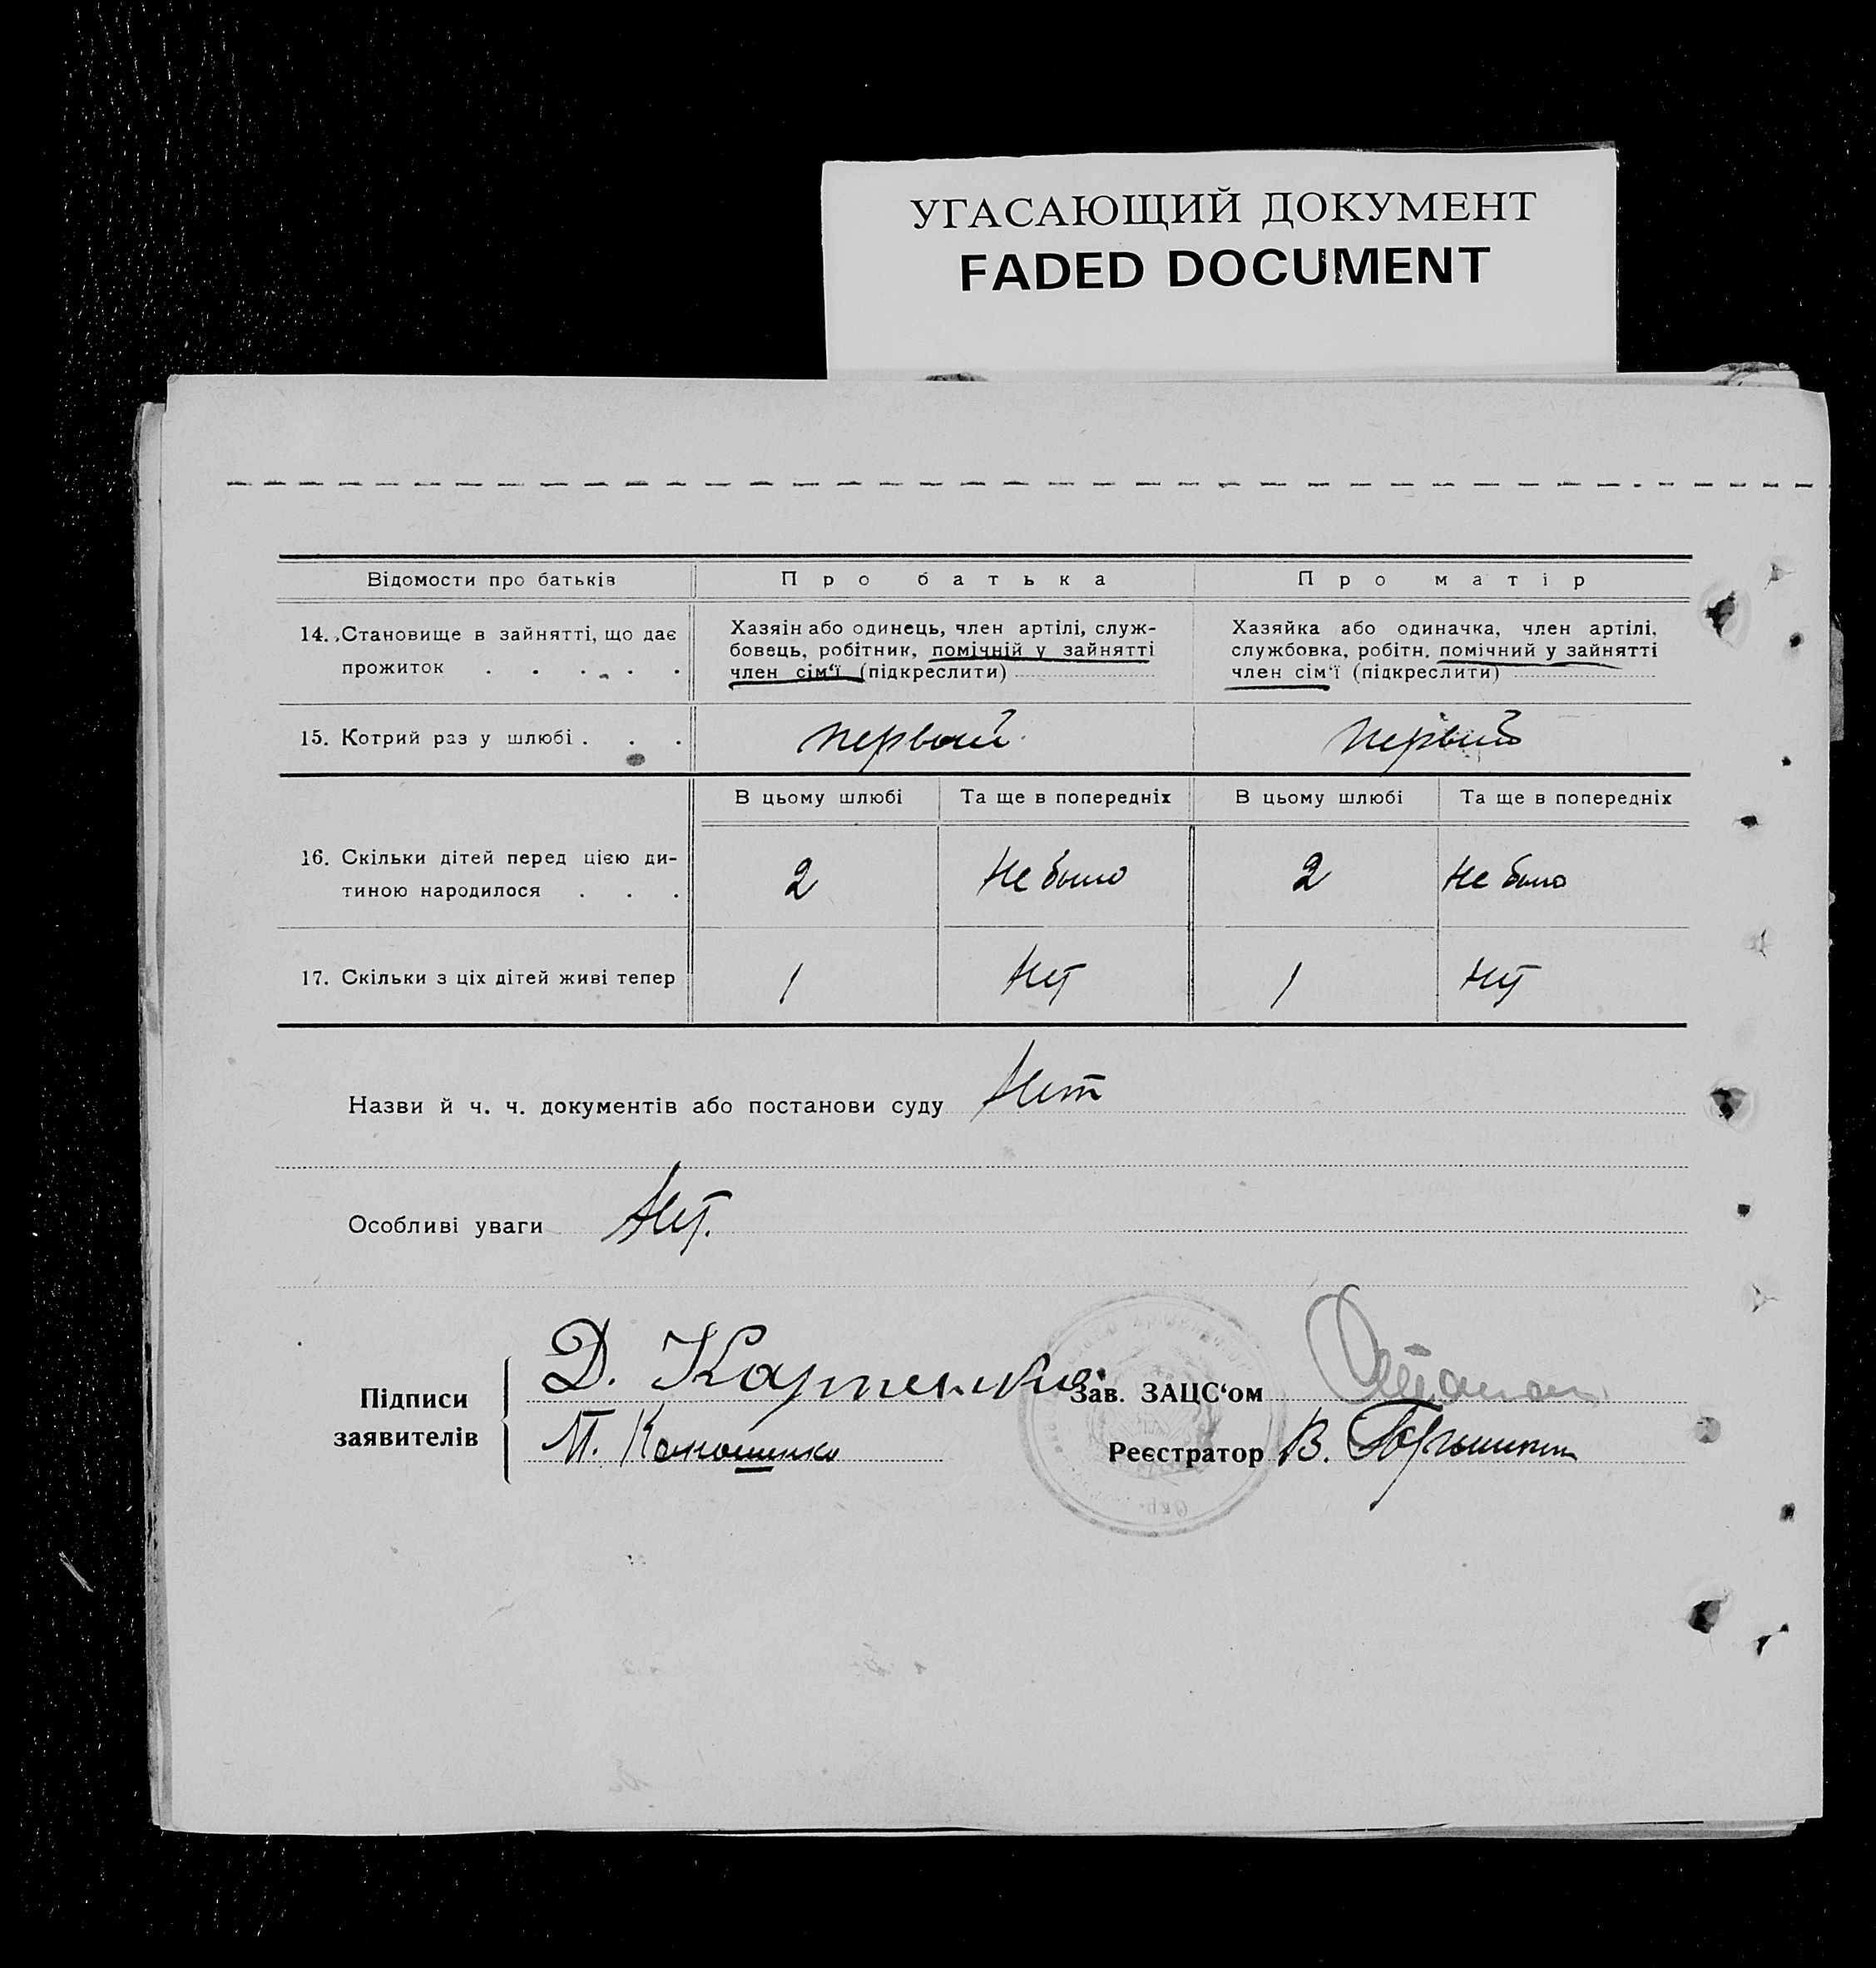 УГАСАЮЩИЙ ДОКУМЕНТ
FADED DOCUMENT
Відомости про батьків Про батька Про матір
14. Становище в зайнятті, що дає
прожиток . . . . .
Хазяін або одинець, член артілі, служ-
бовець, робітник, помічній у зайнятті
член сім‘ї (підкреслити)
Хазяйка або одиначка, член артілі,
службовка, робітн. помічний у зайнятті
член сім‘ї (підкреслити)
15. Котрий раз у шлюбі . . . первый первый
В цьому шлюбі Та ще в попередніх В цьому шлюбі Та ще в попередніх
16. Скільки дітей перед цією ди-
тиною народилося . . .
2 Не было 2 Не было
17. Скільки з ціх дітей живі тепер 1 Нет 1 Нет
Назви й ч. ч. документів або постанови суду Нет
Особливі уваги Нет.
Підписи
заявителів
Д. Карпенко
М.
Зав. ЗАЦС‘ом
Реєстратор В.